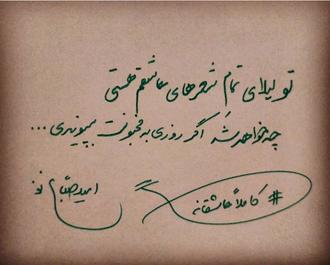 تو لیلای تمام شعرهای عاشقم هستی
چه خواهد شد اگر روزی به مجنونت بپیوندی ...
امید صباغ نو
# کاملا عاشقانه